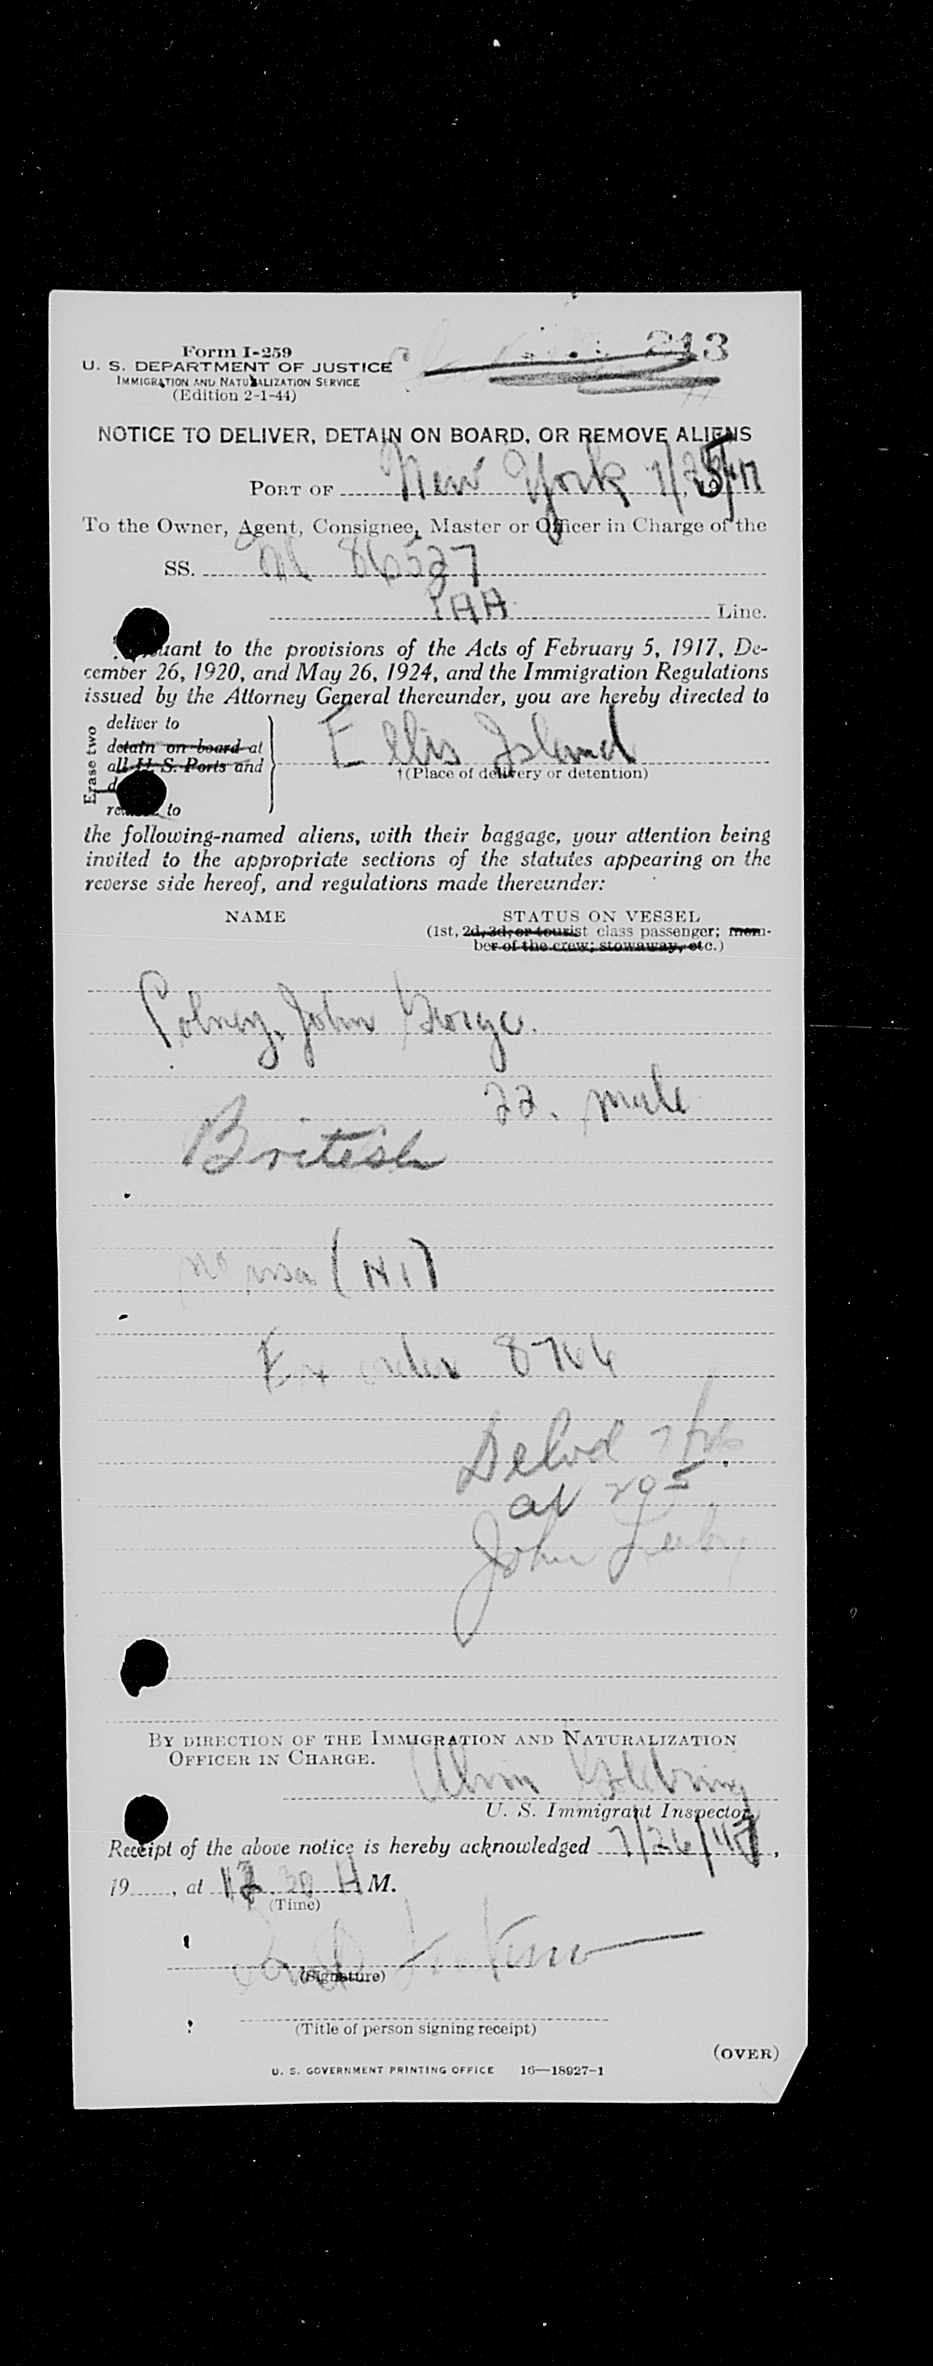 213
Form I-259
U. S. DEPARTMENT OF JUSTICE
IMMIGRATION AND NATURALIZATION SERVICE
(Edition 2-1-44)
NOTICE TO DELIVER, DETAIN ON BOARD, OR REMOVE ALIENS
PORT OF New York 7/25/47
To the Owner, Agent, Consignee, Master or Officer in Charge of the
SS. 86527
PAA Line.
Pursuant to the provisions of the Acts of February 5, 1917, De-
cember 26, 1920, and May 26, 1924, and the Immigration Regulations
issued by the Attorney General thereunder, you are hereby directed to
Erase two
deliver to
detain on board at
all U. S. Ports and
to
Ellis Island
†(Place of delivery or detention)
the following-named aliens, with their baggage, your attention being
invited to the appropriate sections of the statutes appearing on the
reverse side hereof, and regulations made thereunder:
NAME STATUS ON VESSEL
(1st, 2d, 3d, or tourist class passenger; mem-
ber of the crew; stowaway, etc.)
John George.
22. male
British
no visa (NI)
Ex order 8766
Delvd 7/26
at 205
John
BY DIRECTION OF THE IMMIGRATION AND NATURALIZATION
OFFICER IN CHARGE.
U. S. Immigrant Inspector.
Receipt of the above notice is hereby acknowledged 7/26/47,
19......, at 12 30 A M.
(Time)
(Signature)
(Title of person signing receipt)
(OVER)
U. S. GOVERNMENT PRINTING OFFICE 16—18927-1